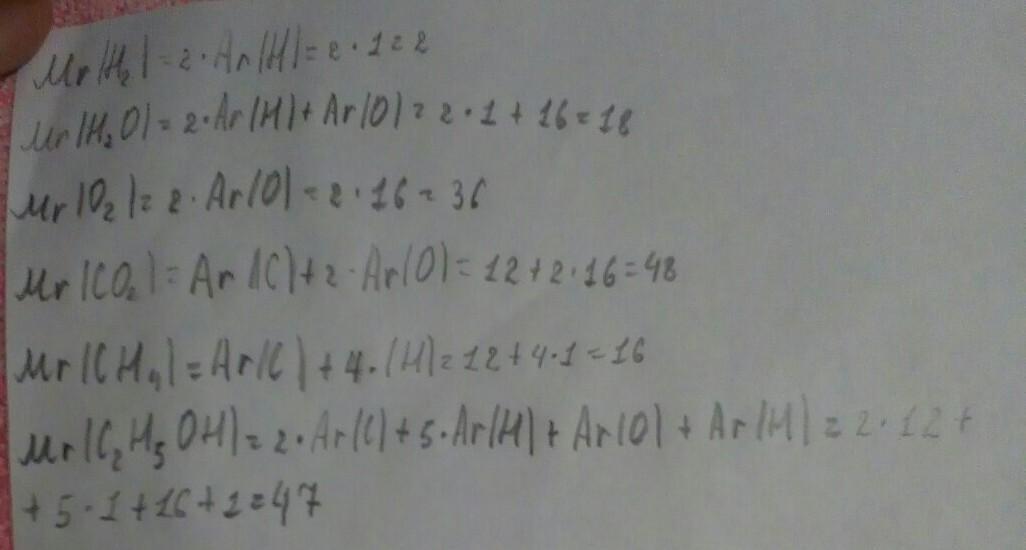 Mr(H₂) = 2·Ar(H) = 2·1 = 2
Mr(H₂O) = 2·Ar(H) + Ar(O) = 2·1 + 16 = 18
Mr(O₂) = 2·Ar(O) = 2·16 = 36
Mr(CO₂) = Ar(C) + 2·Ar(O) = 12 + 2·16 = 48
Mr(CH₄) = Ar(C) + 4·(H) = 12 + 4·1 = 16
Mr(C₂H₅OH) = 2·Ar(C) + 5·Ar(H) + Ar(O) + Ar(H) = 2·12 +
+ 5·1 + 16 + 1 = 47